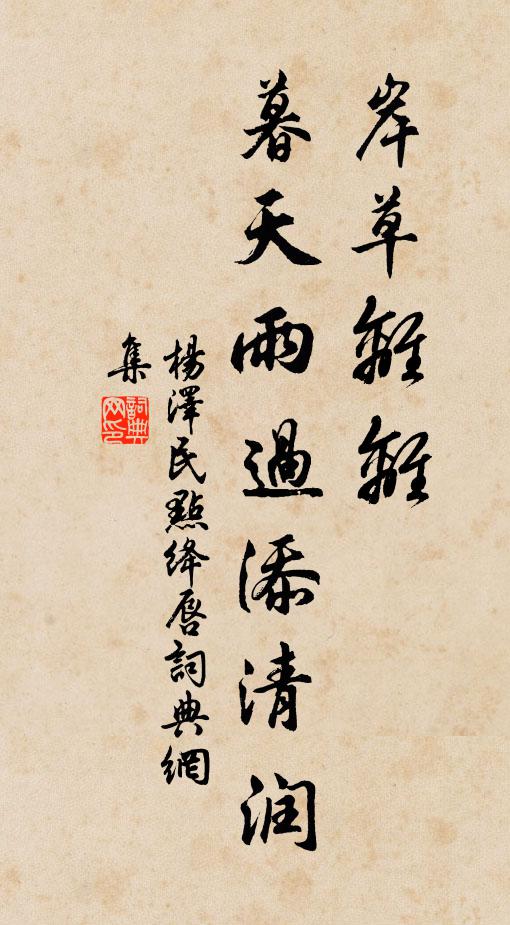 岸草離離
暮天雨過添清润
楊澤民點绛唇詞典網
集
詞典网印